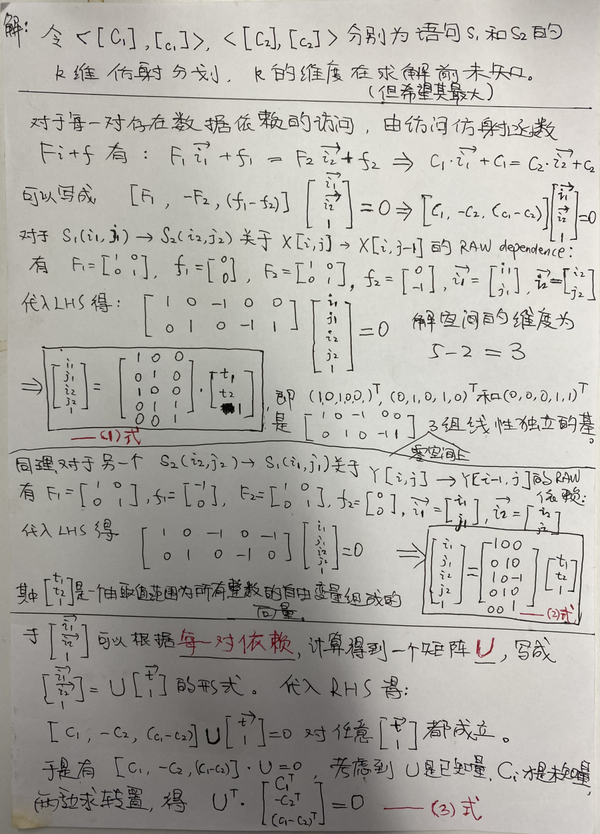 解: 令 <[C₁],[c₁]>, <[C₂],[c₂]> 分别为语句 S₁ 和 S₂ 的
k 维 仿射 分划, k 的维度 在求解前未知。
(但希望其最大)
对于每一对存在数据依赖的访问, 由访问仿射函数
Fi+f 有: F₁i₁→ + f₁ = F₂i₂→ + f₂ ⇒ C₁·i₁→ + c₁ = C₂·i₂→ + c₂
可以写成 [F₁, -F₂, (f₁-f₂)] [i₁→ i₂→ 1] = 0 ⇒ [C₁, -C₂, (c₁-c₂)] [i₁→ i₂→ 1] = 0
对于 S₁(i₁,j₁) → S₂(i₂,j₂) 关于 X[i,j] → X[i,j-1] 的 RAW dependence:
有 F₁=[1 0 0 1], f₁=[0 0], F₂=[1 0 0 1], f₂=[0 -1], i₁→=[i₁ j₁], i₂→=[i₂ j₂]
代入LHS得: [1 0 -1 0 0 0 1 0 -1 1] [i₁ j₁ i₂ j₂ 1] = 0
解空间的维度为
5-2=3
⇒ [i₁ j₁ i₂ j₂ 1] = [1 0 0 0 1 0 1 0 0 0 1 1 0 0 1] · [t₁ t₂ 1]
——(1)式
即 (1,0,1,0,0)ᵀ, (0,1,0,1,0)ᵀ 和 (0,0,0,1,1)ᵀ
是 [1 0 -1 0 0 0 1 0 -1 1] 3组线性独立的基。
零空间上
同理,对于另一个 S₂(i₂,j₂) → S₁(i₁,j₁) 关于 Y[i,j] → Y[i-1,j] 的 RAW
依赖:
有 F₁=[1 0 0 1], f₁=[-1 0], F₂=[1 0 0 1], f₂=[0 0], i₁→=[i₁ j₁], i₂→=[i₂ j₂]
代入LHS 得 [1 0 -1 0 -1 0 1 0 -1 0] [i₁ j₁ i₂ j₂ 1] = 0
⇒ [i₁ j₁ i₂ j₂ 1] = [1 0 0 0 1 0 1 0 -1 0 1 0 0 0 1] [t₁ t₂ 1]
——(2)式
其中 [t₁ t₂ 1] 是一个由取值范围为所有整数的自由变量组成的
向量。
于 [i₁→ i₂→ 1] 可以根据每一对依赖, 计算得到一个矩阵 U, 写成
[i₁→ i₂→ 1] = U [t→ 1] 的形式。 代入 RHS 得:
[C₁, -C₂, (c₁-c₂)] U [t→ 1] = 0 对任意 [t→ 1] 都成立。
于是有 [C₁, -C₂, (c₁-c₂)]·U = 0, 考虑到 U 是已知量, Cᵢ 才是未知量,
两边求转置, 得 Uᵀ · [C₁ᵀ -C₂ᵀ (c₁-c₂)ᵀ] = 0 ——(3)式